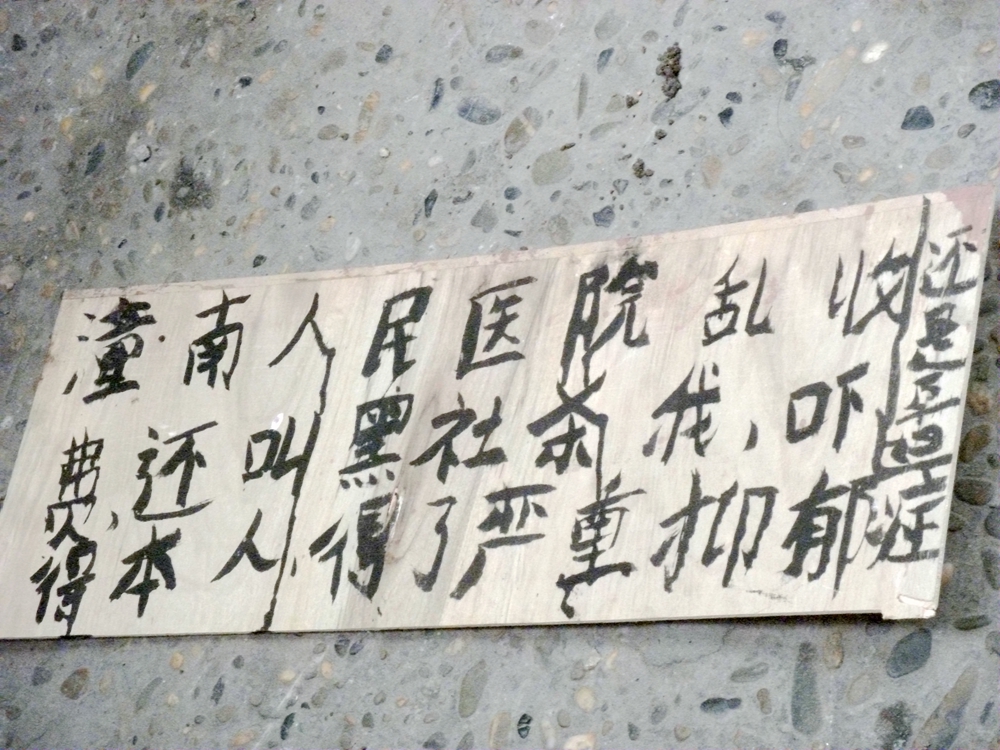 潼南人民医院乱收
费,还叫黑社杀我,吓
得本人得了严重抑郁症
还是